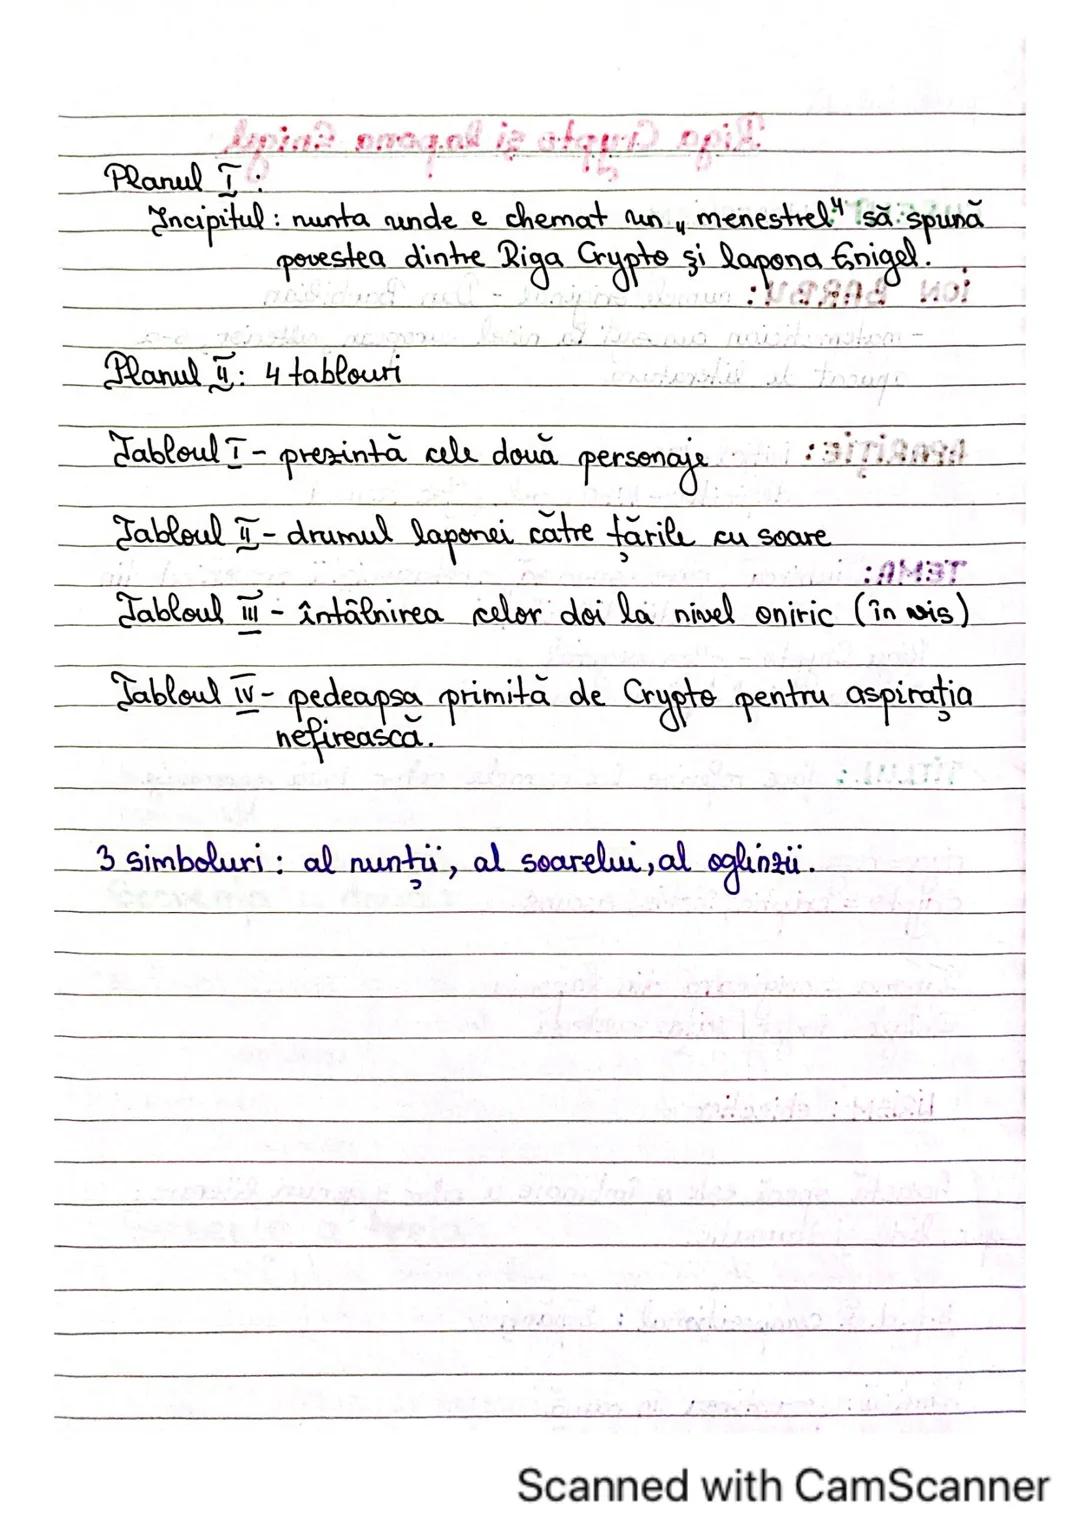 Planul I :
Incipitul : nunta unde e chemat un „menestrel" să spună
povestea dintre Riga Crypto și lapona Enigel.
Planul II: 4 tablouri
Tabloul I - prezintă cele două personaje
Tabloul II - drumul laponei către țările cu soare
Tabloul III - întâlnirea celor doi la nivel oniric (în vis)
Tabloul IV - pedeapsa primită de Crypto pentru aspirația
nefirească.
3 simboluri : al nunții, al soarelui, al oglinzii.
Scanned with CamScanner